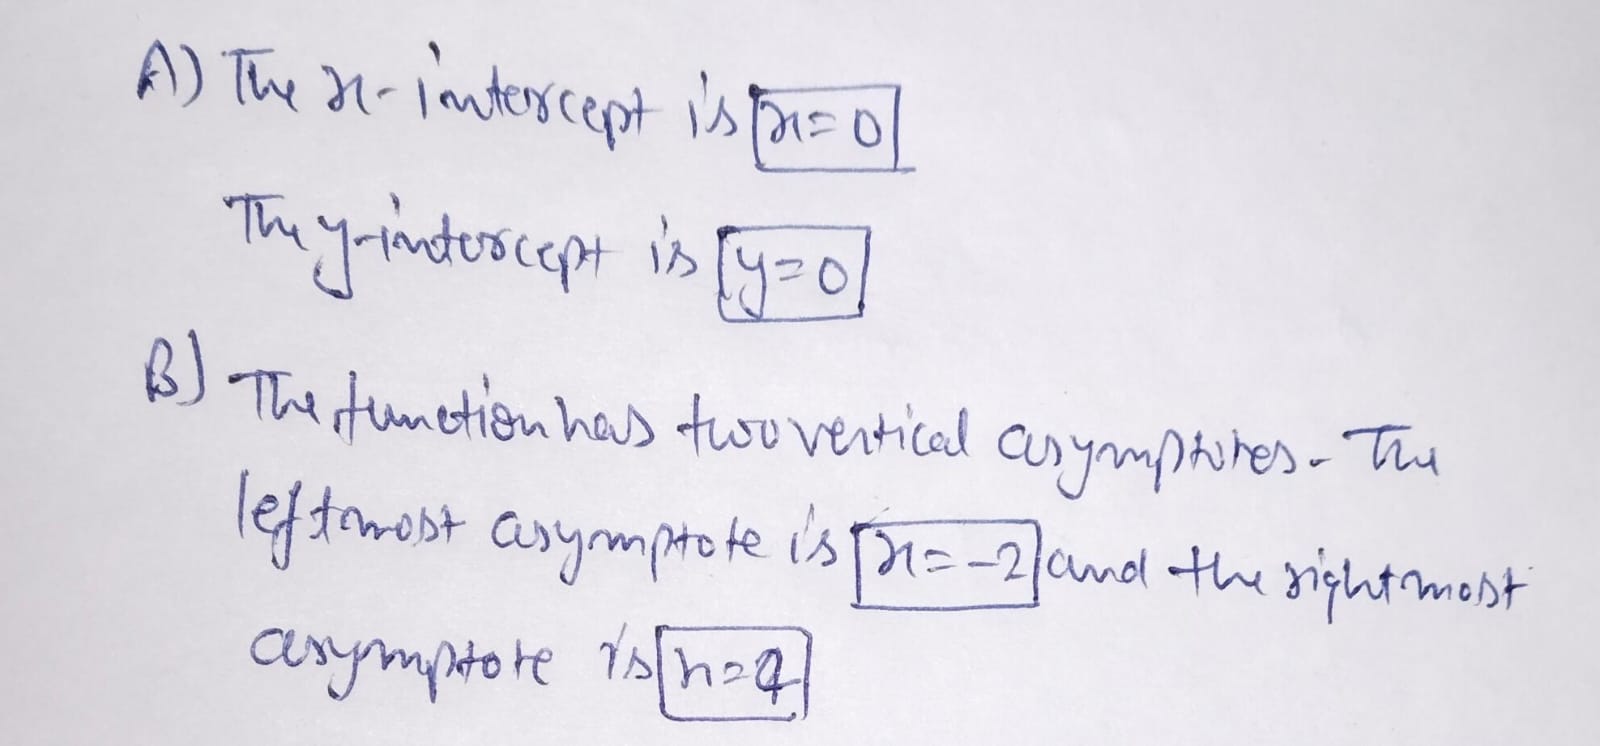 A) The x-intercept is x=0
The y-intercept is y=0
B) The function has two vertical asymptotes. The
leftmost asymptote is x=-2 and the rightmost
asymptote is